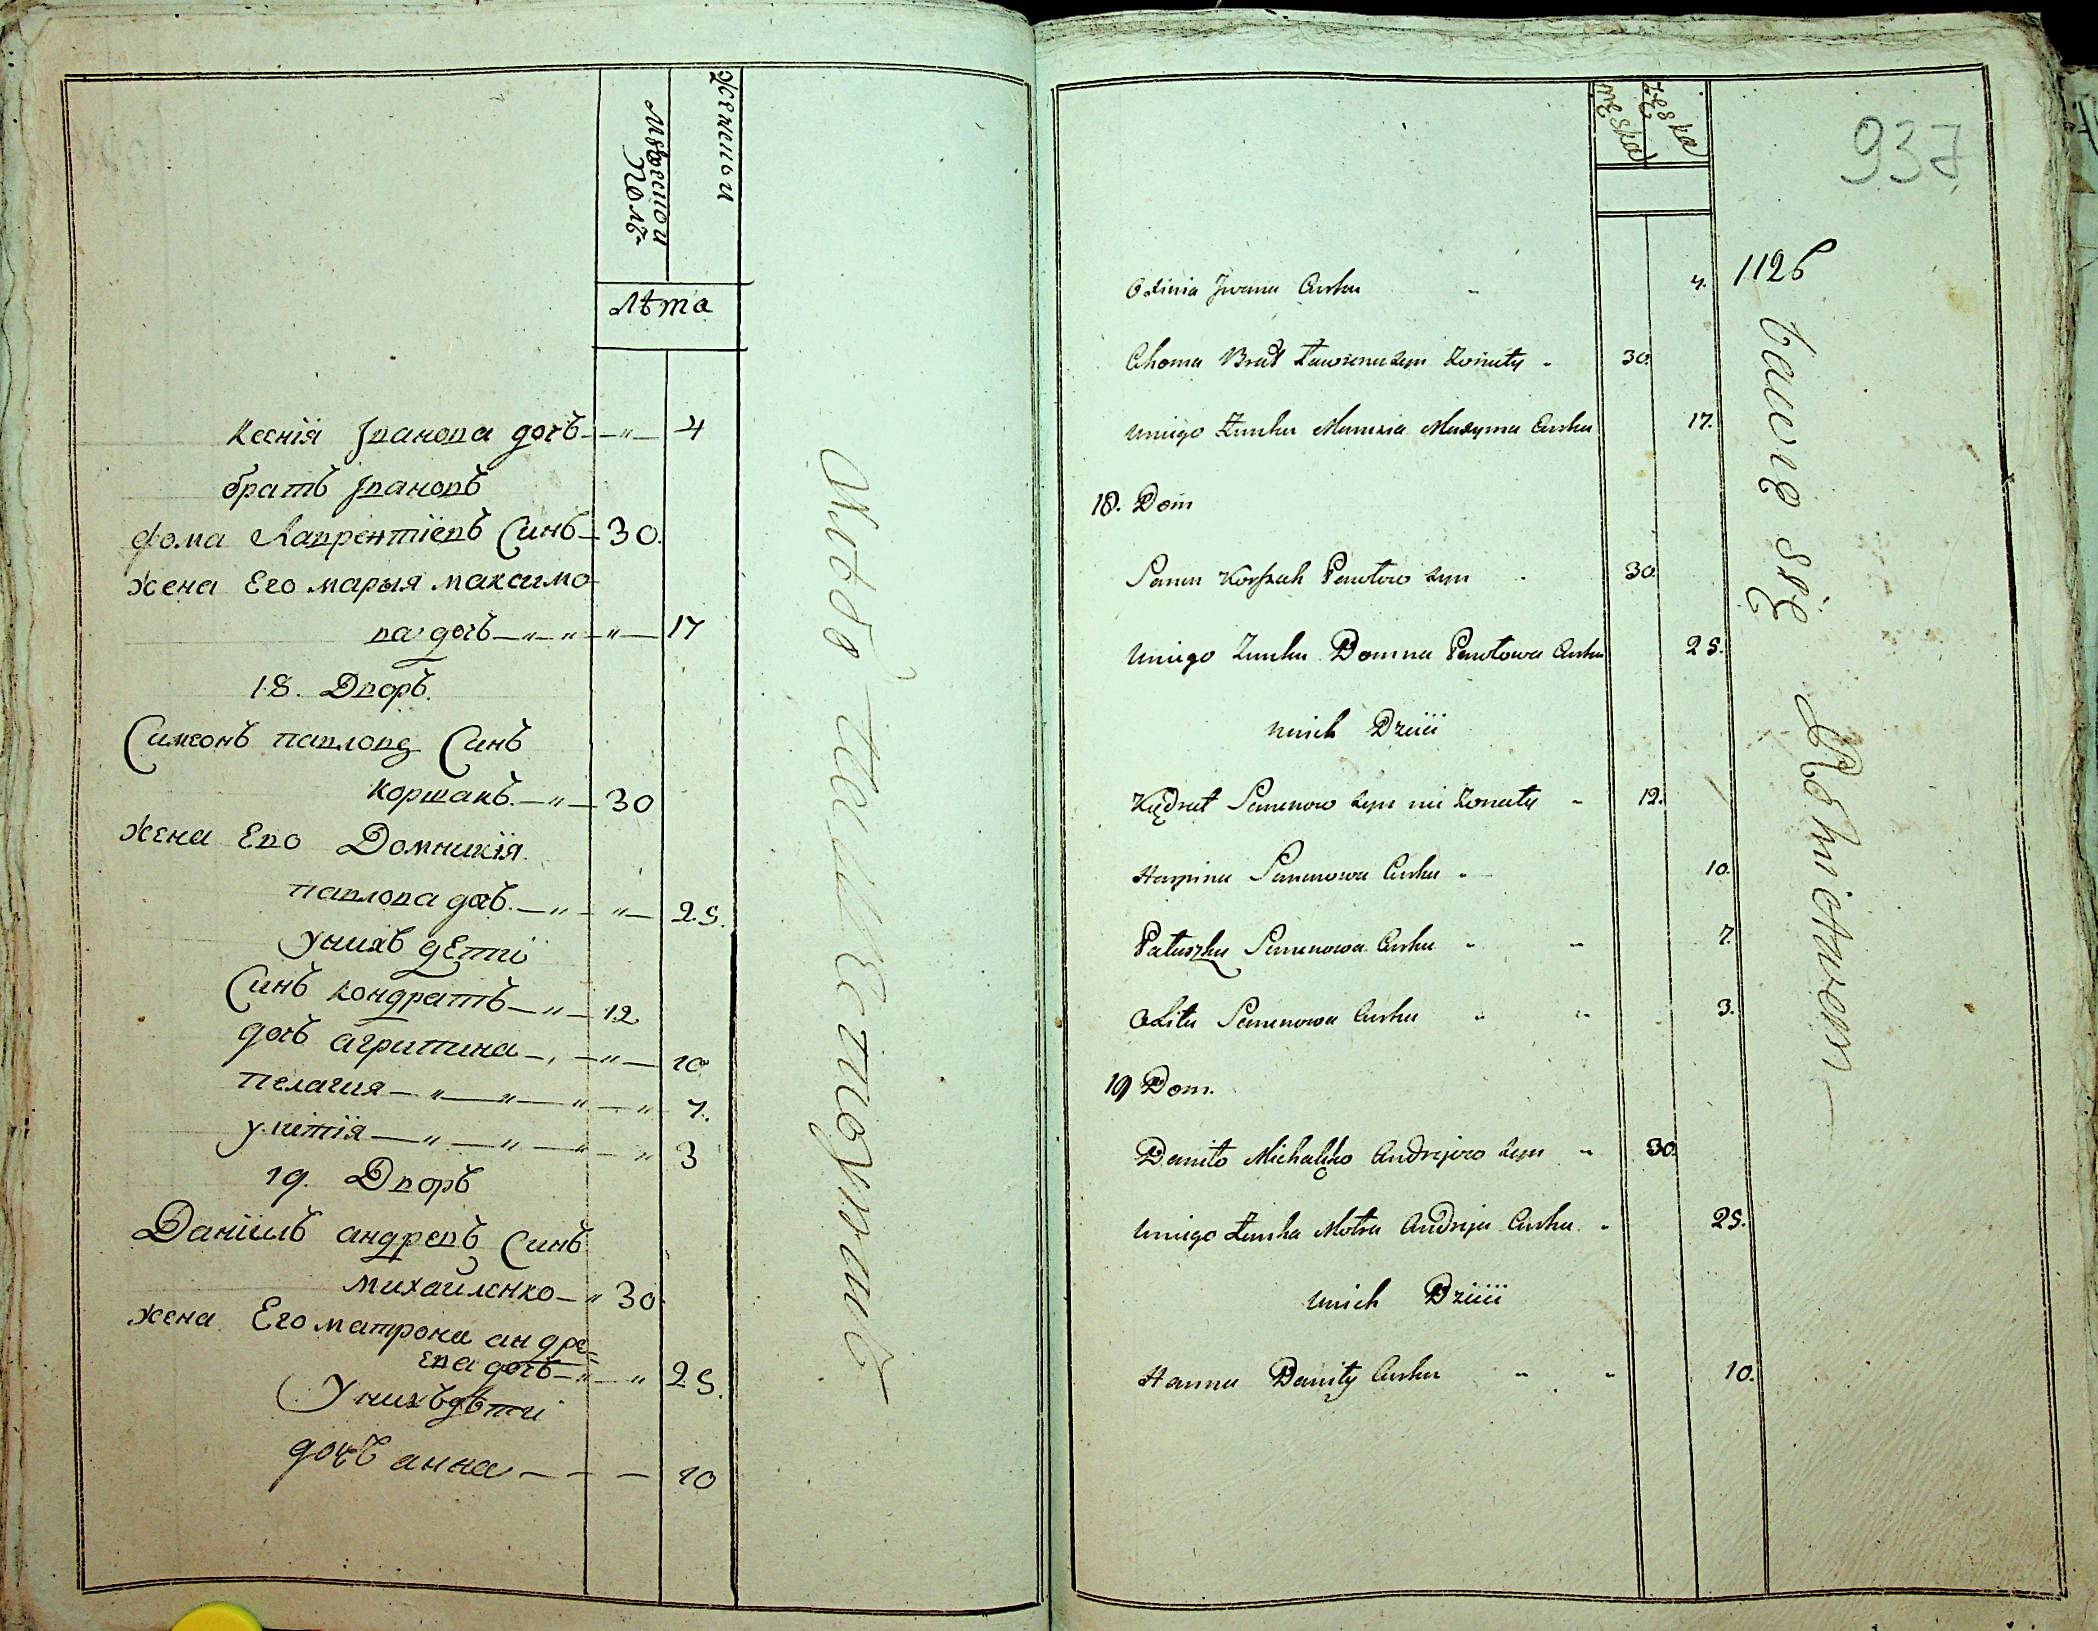 мужеско и
женски
Полъ
Лѣта
Ксенїя Іванова дочь 4
братъ Івановъ
Фома Лаврентїевъ Синъ 30
жена Его марыя максимо
ва дочь 17
18. Дворъ
Симеонъ павловъ Синъ
Коршакъ 30
жена Его Домникїя
павлова дочь 25
У нихъ дЕтїи
Синъ кондратъ 12
дочь агрипина 10
пелагия 7
улитїя 3
19. Дворъ
Данїилъ андреевъ Синъ
Михайленко 30
жена Его матрона андре
ева дочь 25
У нихъ дѣтїи
дочь анна 10
937
męska
żeska
1126
Oxinia Jwana Curka 4.
Choma Brat Ławrenu syn Żonaty 30.
Uniego Żonka Maruxia Maxyma Curka 17.
18. Dom
Semen Korszak Pawłow syn 30
Uniego Żonka Domna Pawłowa Curka 25.
Unich Dzieii
Kądrat Semenow syn nie Żonaty 12.
Harpina Semenowa Curka 10.
Pałaszka Semenowa Curka 7.
Olita Semenowa Curka 3.
19 Dom.
Daniło Michałko Andrejow syn 30.
Uniego Żonka Motra Andreja Curka 25.
Unich Dzieii
Hanna Daniły Curka 10.
bawię się Rolnictwem